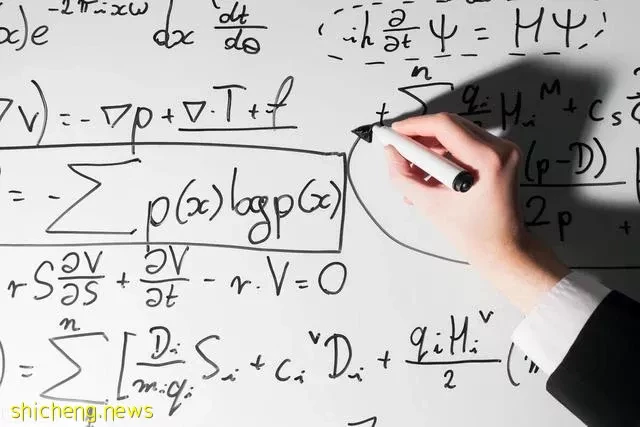 x)e^{-2πixω} dx dt/dθ
iħ ∂/∂t Ψ = HΨ
∇v) = -∇p + ∇·T + f
= -∑ p(x) log p(x)
(p-D)
2p
rS ∂V/∂S + ∂V/∂t - r·V = 0
) = ∑ⁿ [ Dᵢ/mᵢqᵢ Sᵢ + cᵢᵛDᵢ + qᵢHᵢᵛ/2 (
shicheng.news